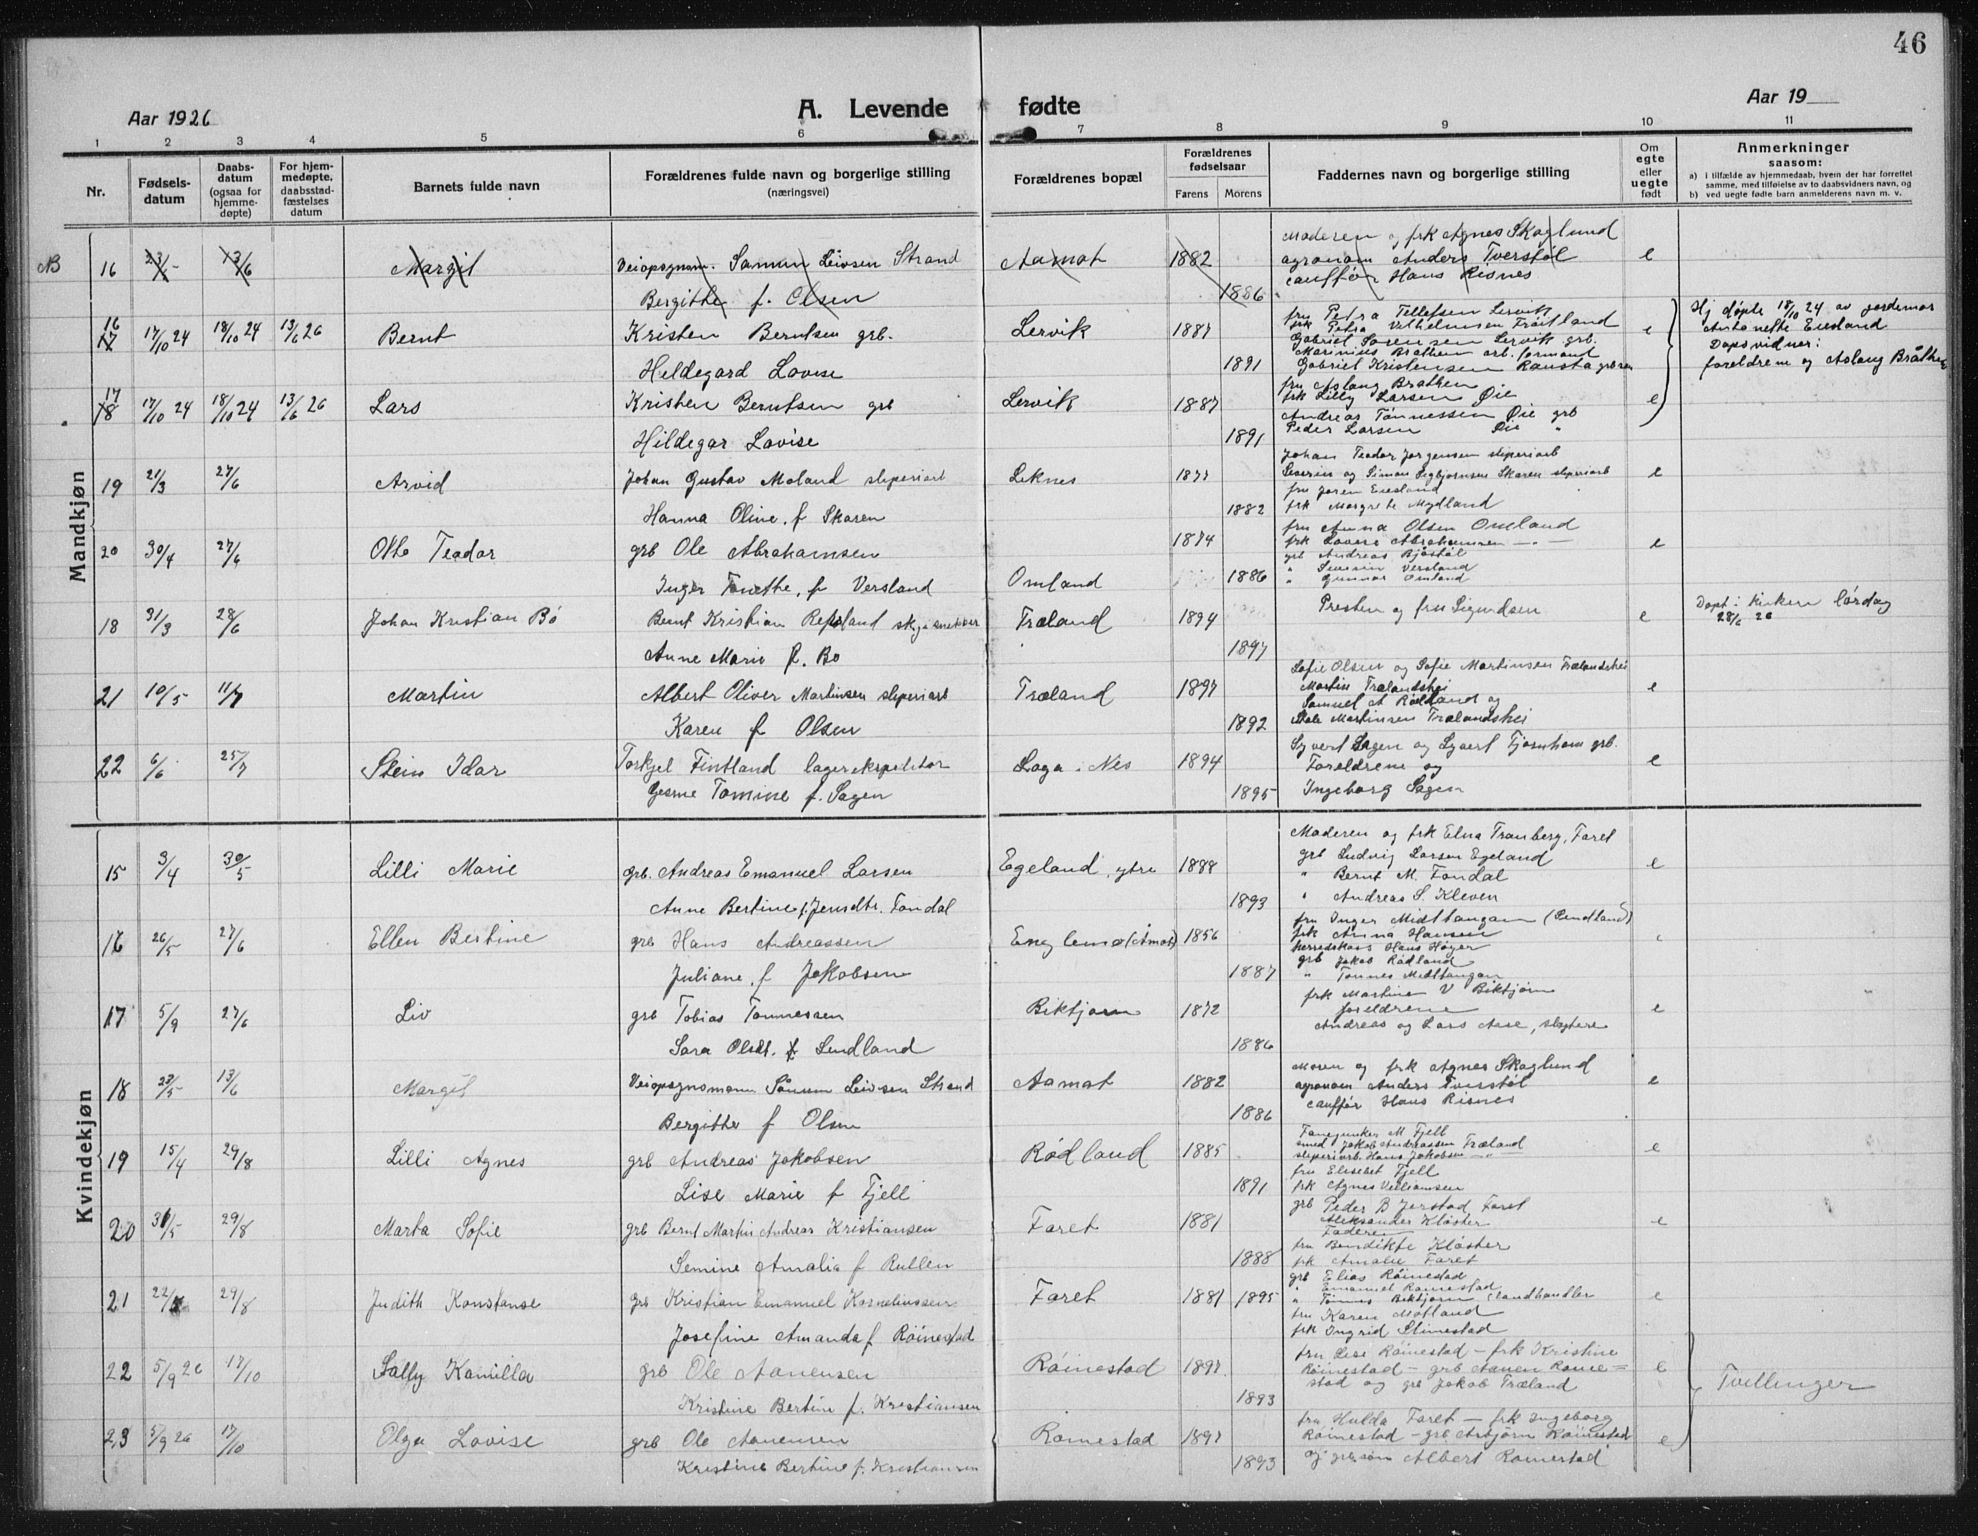 46
Aar 1926 A. Levende fødte Aar 19
1 2 3 4 5 6 7 8 9 10 11
Nr. Fødsels-datum Daabs-datum (ogsaa for hjemme-døpte) For hjem-medøpte, daabsstad-fæstelses datum Barnets fulde navn Forældrenes fulde navn og borgerlige stilling (næringsvei) Forældrenes bopæl Forældrenes fødselsaar Farens Morens Faddernes navn og borgerlige stilling Om egte eller uegte født Anmerkninger saasom:
a) i tilfælde av hjemmedaab, hvem der har forrettet samme, med tilføielse av to daabsvidners navn, og
b) ved uegte fødte barn anmelderens navn m. v.
Mandkjøn
Moderen og frk Agnes Skaglund
NB 16 23/5 13/6 Margit Veiopsynsm. Leivsen Strand Aamot 1882 agronom Anders Tverstøl e
Bergithe f. Olsen 1886 cauffør Hans Risnes
fru Petra Tellefsen Lervik
16 17 17/10 24 18/10 24 13/6 26 Bernt Kristen Berntsen grb. Lervik 1887 e Hj døpte 18/10 24 av jordemor
Gabriel Sørensen Lervik grb.
Marinius Bråthen arb. formand Dopsvidner:
Hildegard Lovise 1891 Gabriel Kristensen foreldrene og Aslaug Bråthen
fru Aslaug Brathen
17 18 17/10 24 18/10 24 13/6 26 Lars Kristen Berntsen grb Lervik 1887 frk Lilly Larsen Øie e
Andreas Tønnessen Øie grb
Hildegar Lovise 1891 Peder Larsen Øie "
Johan Teodor Jørgensen sliperiarb
19 21/3 27/6 Arvid Johan Gustav Moland sliperiarb Leknes 1877 Severin og Simon Skaren sliperiarb e
fru Joren Eiesland
Hanna Oline, f Skaren 1882 frk Margrete Mydland
fru Anna Olsen Omland
20 30/4 27/6 Otto Teodor grb Ole Abrahamsen 1874 frk Lovise Abrahamsen — " — e
grb Andreas Bjøstøl
Inger Tonethe, f Versland Omland 1886 " Severin Versland
" Gunnar Omland
18 31/3 28/6 Johan Kristian Bó Bernt Kristian Repsland Træland 1894 Presten og fru Sigundsen e Døpt i kirken lørdag
28/6 26
Anne Marie f. Bo 1897
Sofie Olsen og Sofie Martinsen Trælandshei
21 10/5 11/7 Martin Albert Oliver Martinsen sliperiarb Træland 1897 Martin Trælandshei e
Samuel A Rødland og
Karen f Olsen 1892 Martinsen Trælandshei
22 6/6 25/7 Stein Idar Torkjel Fintland lagerekspeditør Laga i Nes 1894 Syvert Sagen og Syvert Tjomhom grb. e
Foreldrene og
Gesine Tomine f. Sagen 1895 Ingeborg Sagen
Kvindekjøn
Moderen og frk Elna Tranberg, Faret
15 3/4 30/5 Lilli Marie grb. Andreas Emanuel Larsen Egeland, ytre 1888 grb Ludvig Larsen Egeland e
" Bernt M. Fondal
Anne Bertine f. Jensdtr. Fondal 1893 " Andreas S. Kleven
fru Inger Midttangan (Lindland)
16 26/5 27/6 Ellen Bertine grb Hans Andreassen (Åmot) 1856 frk Anna Hansen
herredskass Hans Høyer
grb Jakob Rødland
Juliane, f Jakobsen 1887 " Tønnes Midttangan
17 5/9 27/6 Liv grb Tobias Tønnessen Biktjørn 1872 frk Martine V Biktjørn e
foreldrene
Sara Olsdt. f Lindland 1886 Andreas og Lars Aase, slagtere
18 23/5 13/6 Margit Veiopsynsmann Leivsen Strand Aamot 1882 Moren og frk Agnes Skaglund e
agronom Anders Tverstøl
Bergithe f Olsen 1886 cauffør Hans Risnes
Fanejunker M. Fjell
19 15/4 29/8 Lilli Agnes grb Andreas Jakobsen Rødland 1885 smed Jakob Andreassen Træland e
sliperiarb. Hans Jakobsen — " —
fru Elisebet Fjell
Lise Marie f Fjell 1891 frk Agnes Villiamsen
grb Peder B Jerstad Faret
20 31/5 29/8 Marta Sofie grb Bernt Martin Andreas Kristiansen Faret 1881 Aleksander Kløster e
Faderen
fru Bendikte Kløster
Semine Amalia f Rullen 1888 frk Amalie Faret
grb Elias Røinestad
21 22/5 29/8 Judith Konstanse grb Kristian Emanuel Korneliussen Faret 1881 1895 " Emanuel Røinestad e
" Tønnes Biktjørn landhandler
fru Karen Motland
Josefine Amanda f Røinestad frk Ingrid Stimestad
22 5/9 26 17/10 Sally Kamilla grb Ole Aanensen Røinestad 1897 fru Lise Røinestad — frk Kristine e Tvillinger
Røinestad — grb Aanen Røine=
Kristine Bertine f. Kristiansen 1893 stad og grb Jakob Træland
fru Hulda Faret — frk Ingeborg
23 5/9 26 17/10 Olga Lovise grb Ole Aanensen Røinestad 1897 Røinestad — grb Asbjørn Røinestad e
Kristine Bertine f. Kristiansen 1893 og grb.søn Albert Røinestad